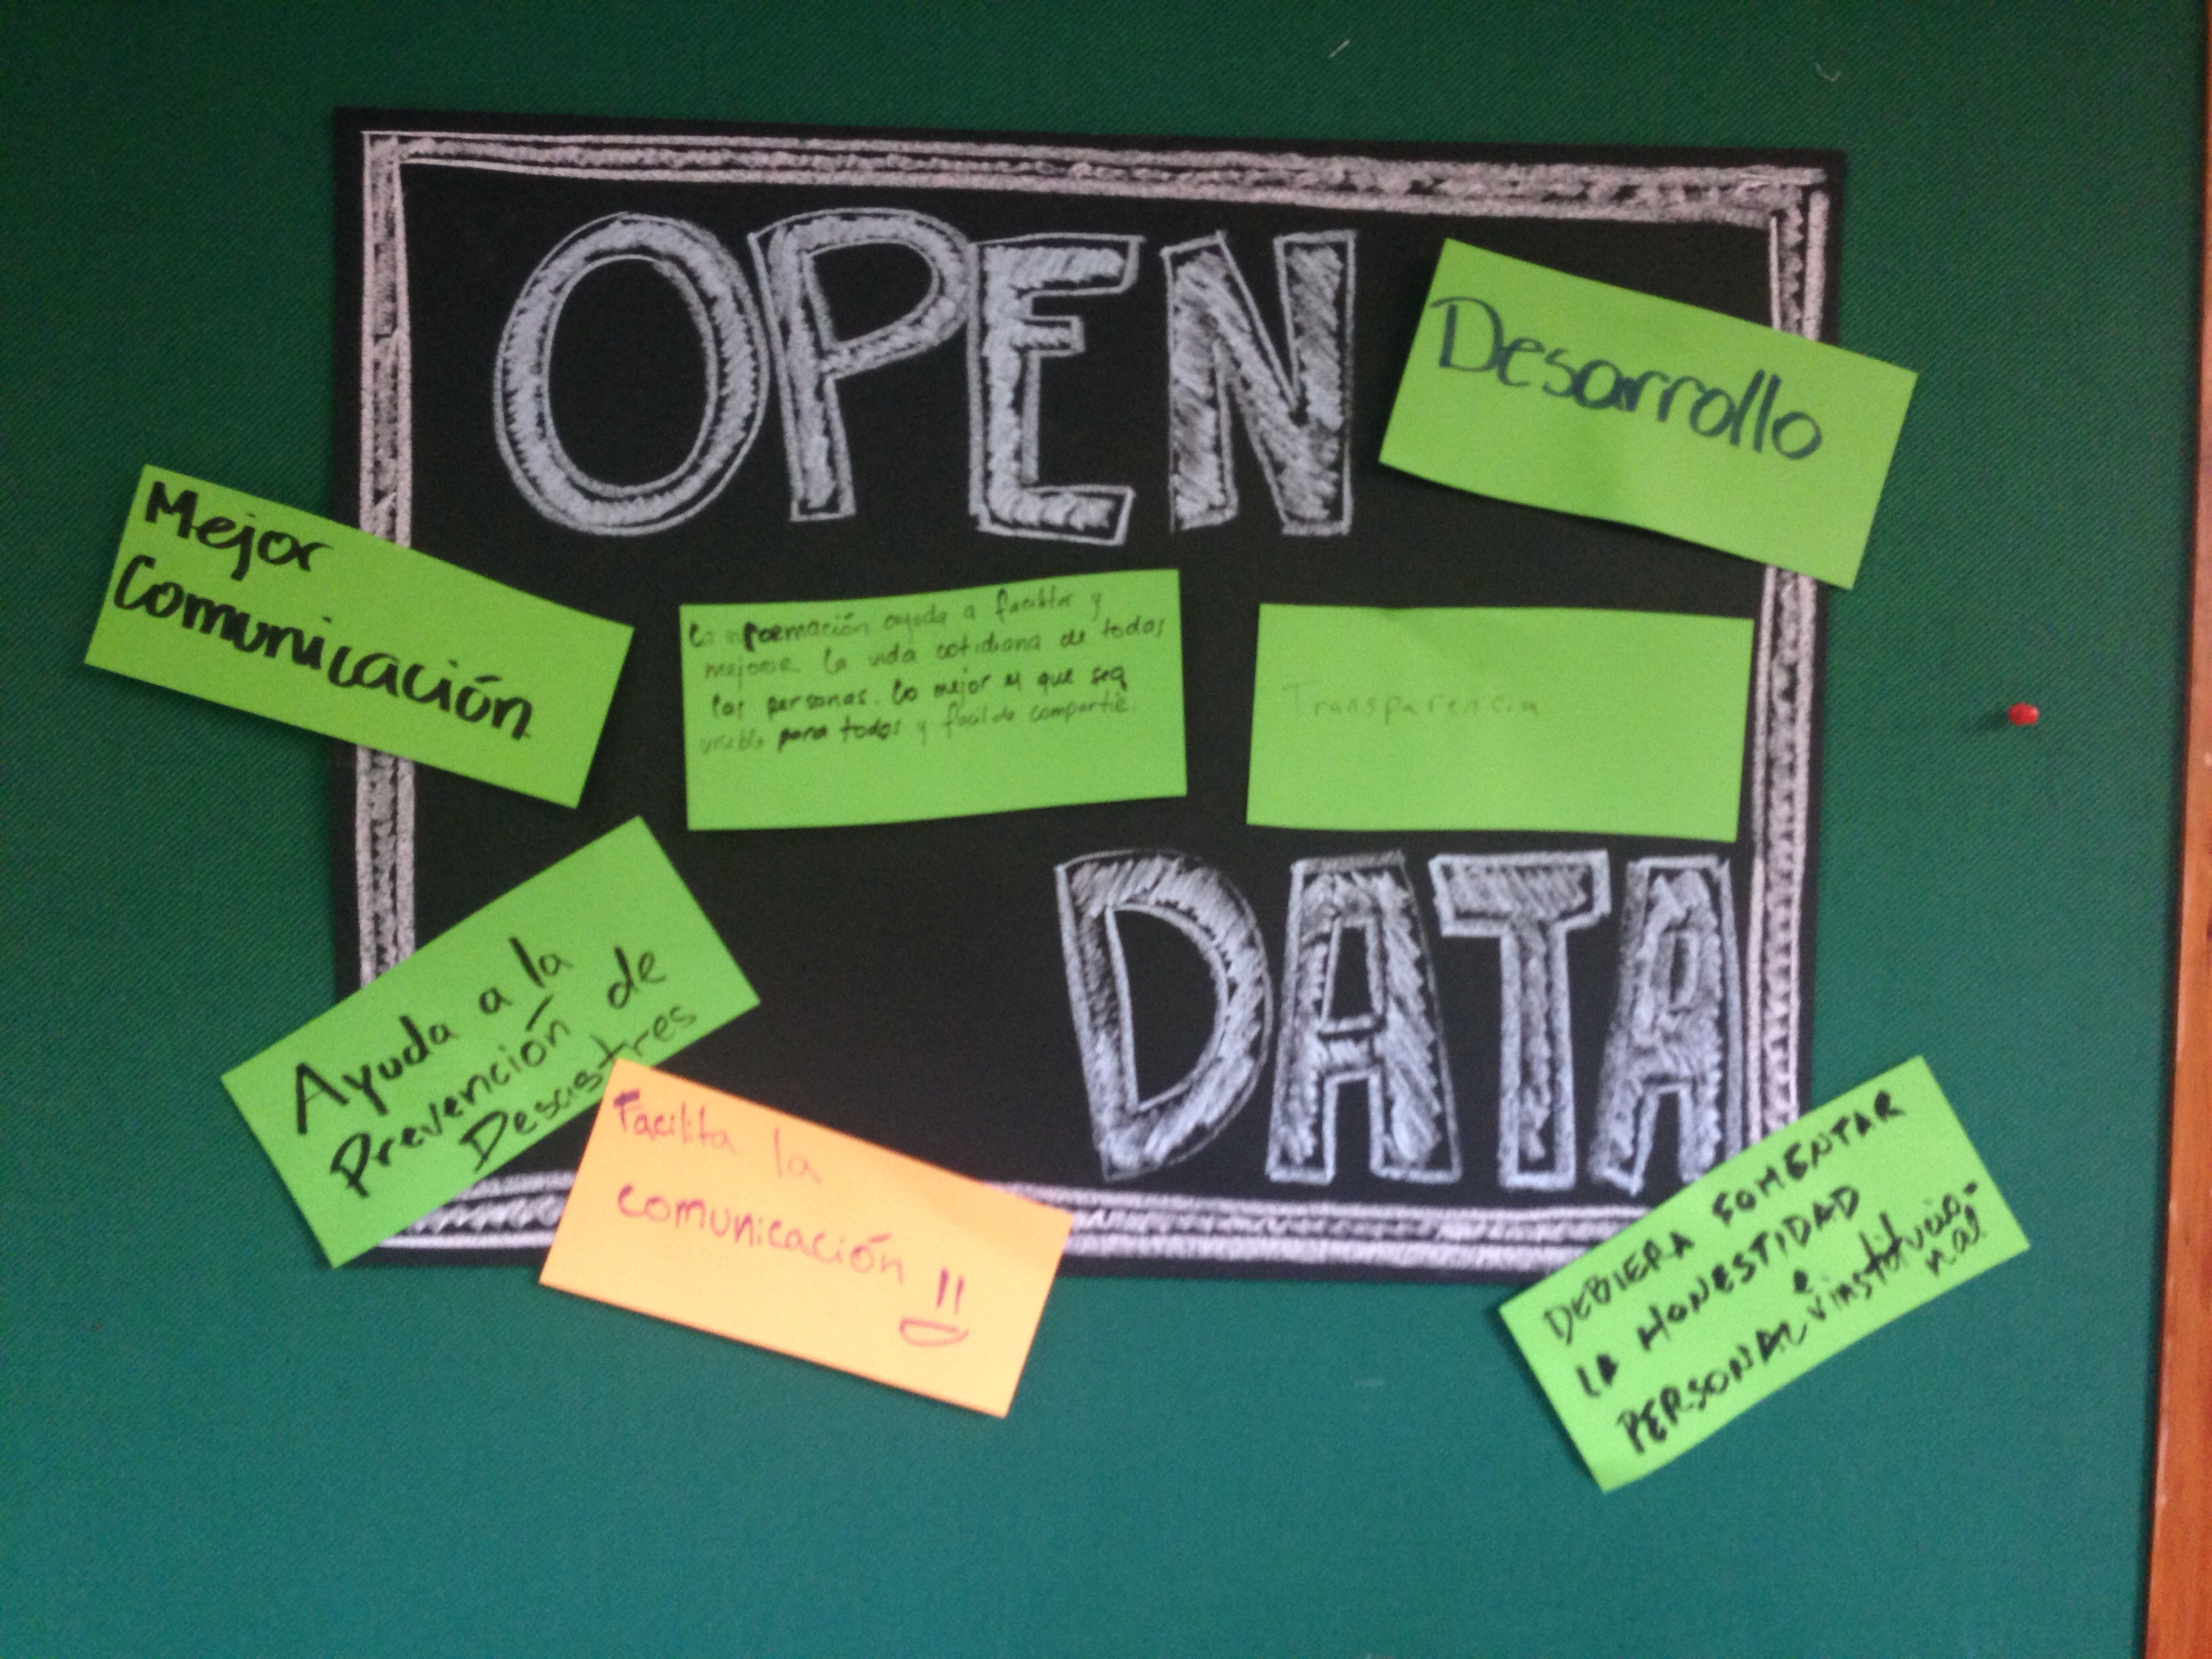 OPEN
Desarrollo
Mejor
Comunicación
La información ayuda a facilitar y
mejorar la vida cotidiana de todas
las personas. Lo mejor es que sea
usable para todos y facil de compartir.
Transparencia
DATA
Ayuda a la
Prevención de
Desastres
Facilita la
comunicación !!
DEBIERA FOMENTAR
LA HONESTIDAD
PERSONAL e institucio-
nal